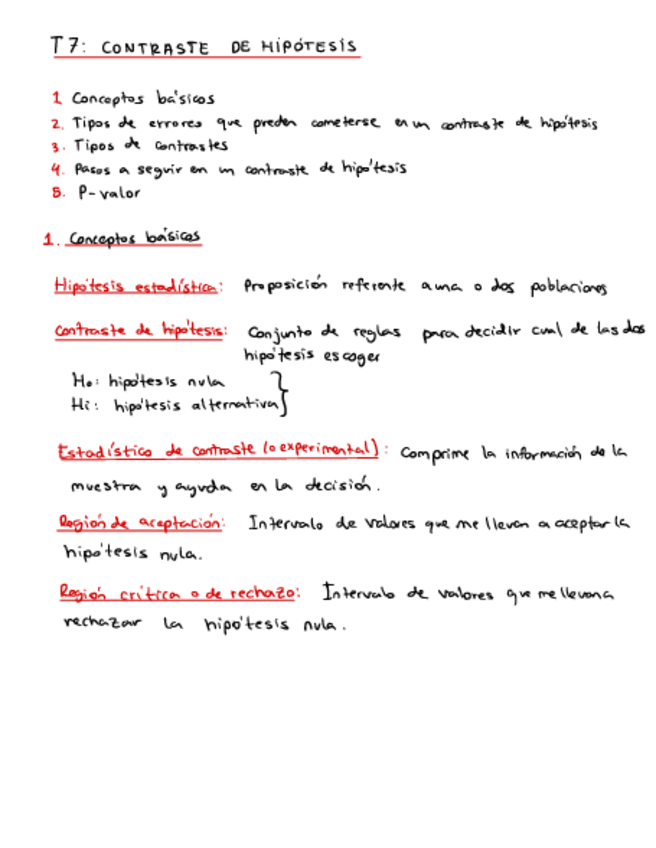 T7: CONTRASTE DE HIPÓTESIS
1 Conceptos básicos
2. Tipos de errores que pueden cometerse en un contraste de hipótesis
3. Tipos de contrastes
4. Pasos a seguir en un contraste de hipótesis
5. P-valor
1. Conceptos básicos
Hipótesis estadística: Proposición referente a una o dos poblaciones
Contraste de hipótesis: Conjunto de reglas para decidir cual de las dos
hipótesis escoger
Ho: hipótesis nula
Hi: hipótesis alternativa
Estadístico de contraste (o experimental): Comprime la información de la
muestra y ayuda en la decisión.
Región de aceptación: Intervalo de valores que me llevan a aceptar la
hipótesis nula.
Región crítica o de rechazo: Intervalo de valores que me llevan a
rechazar la hipótesis nula.